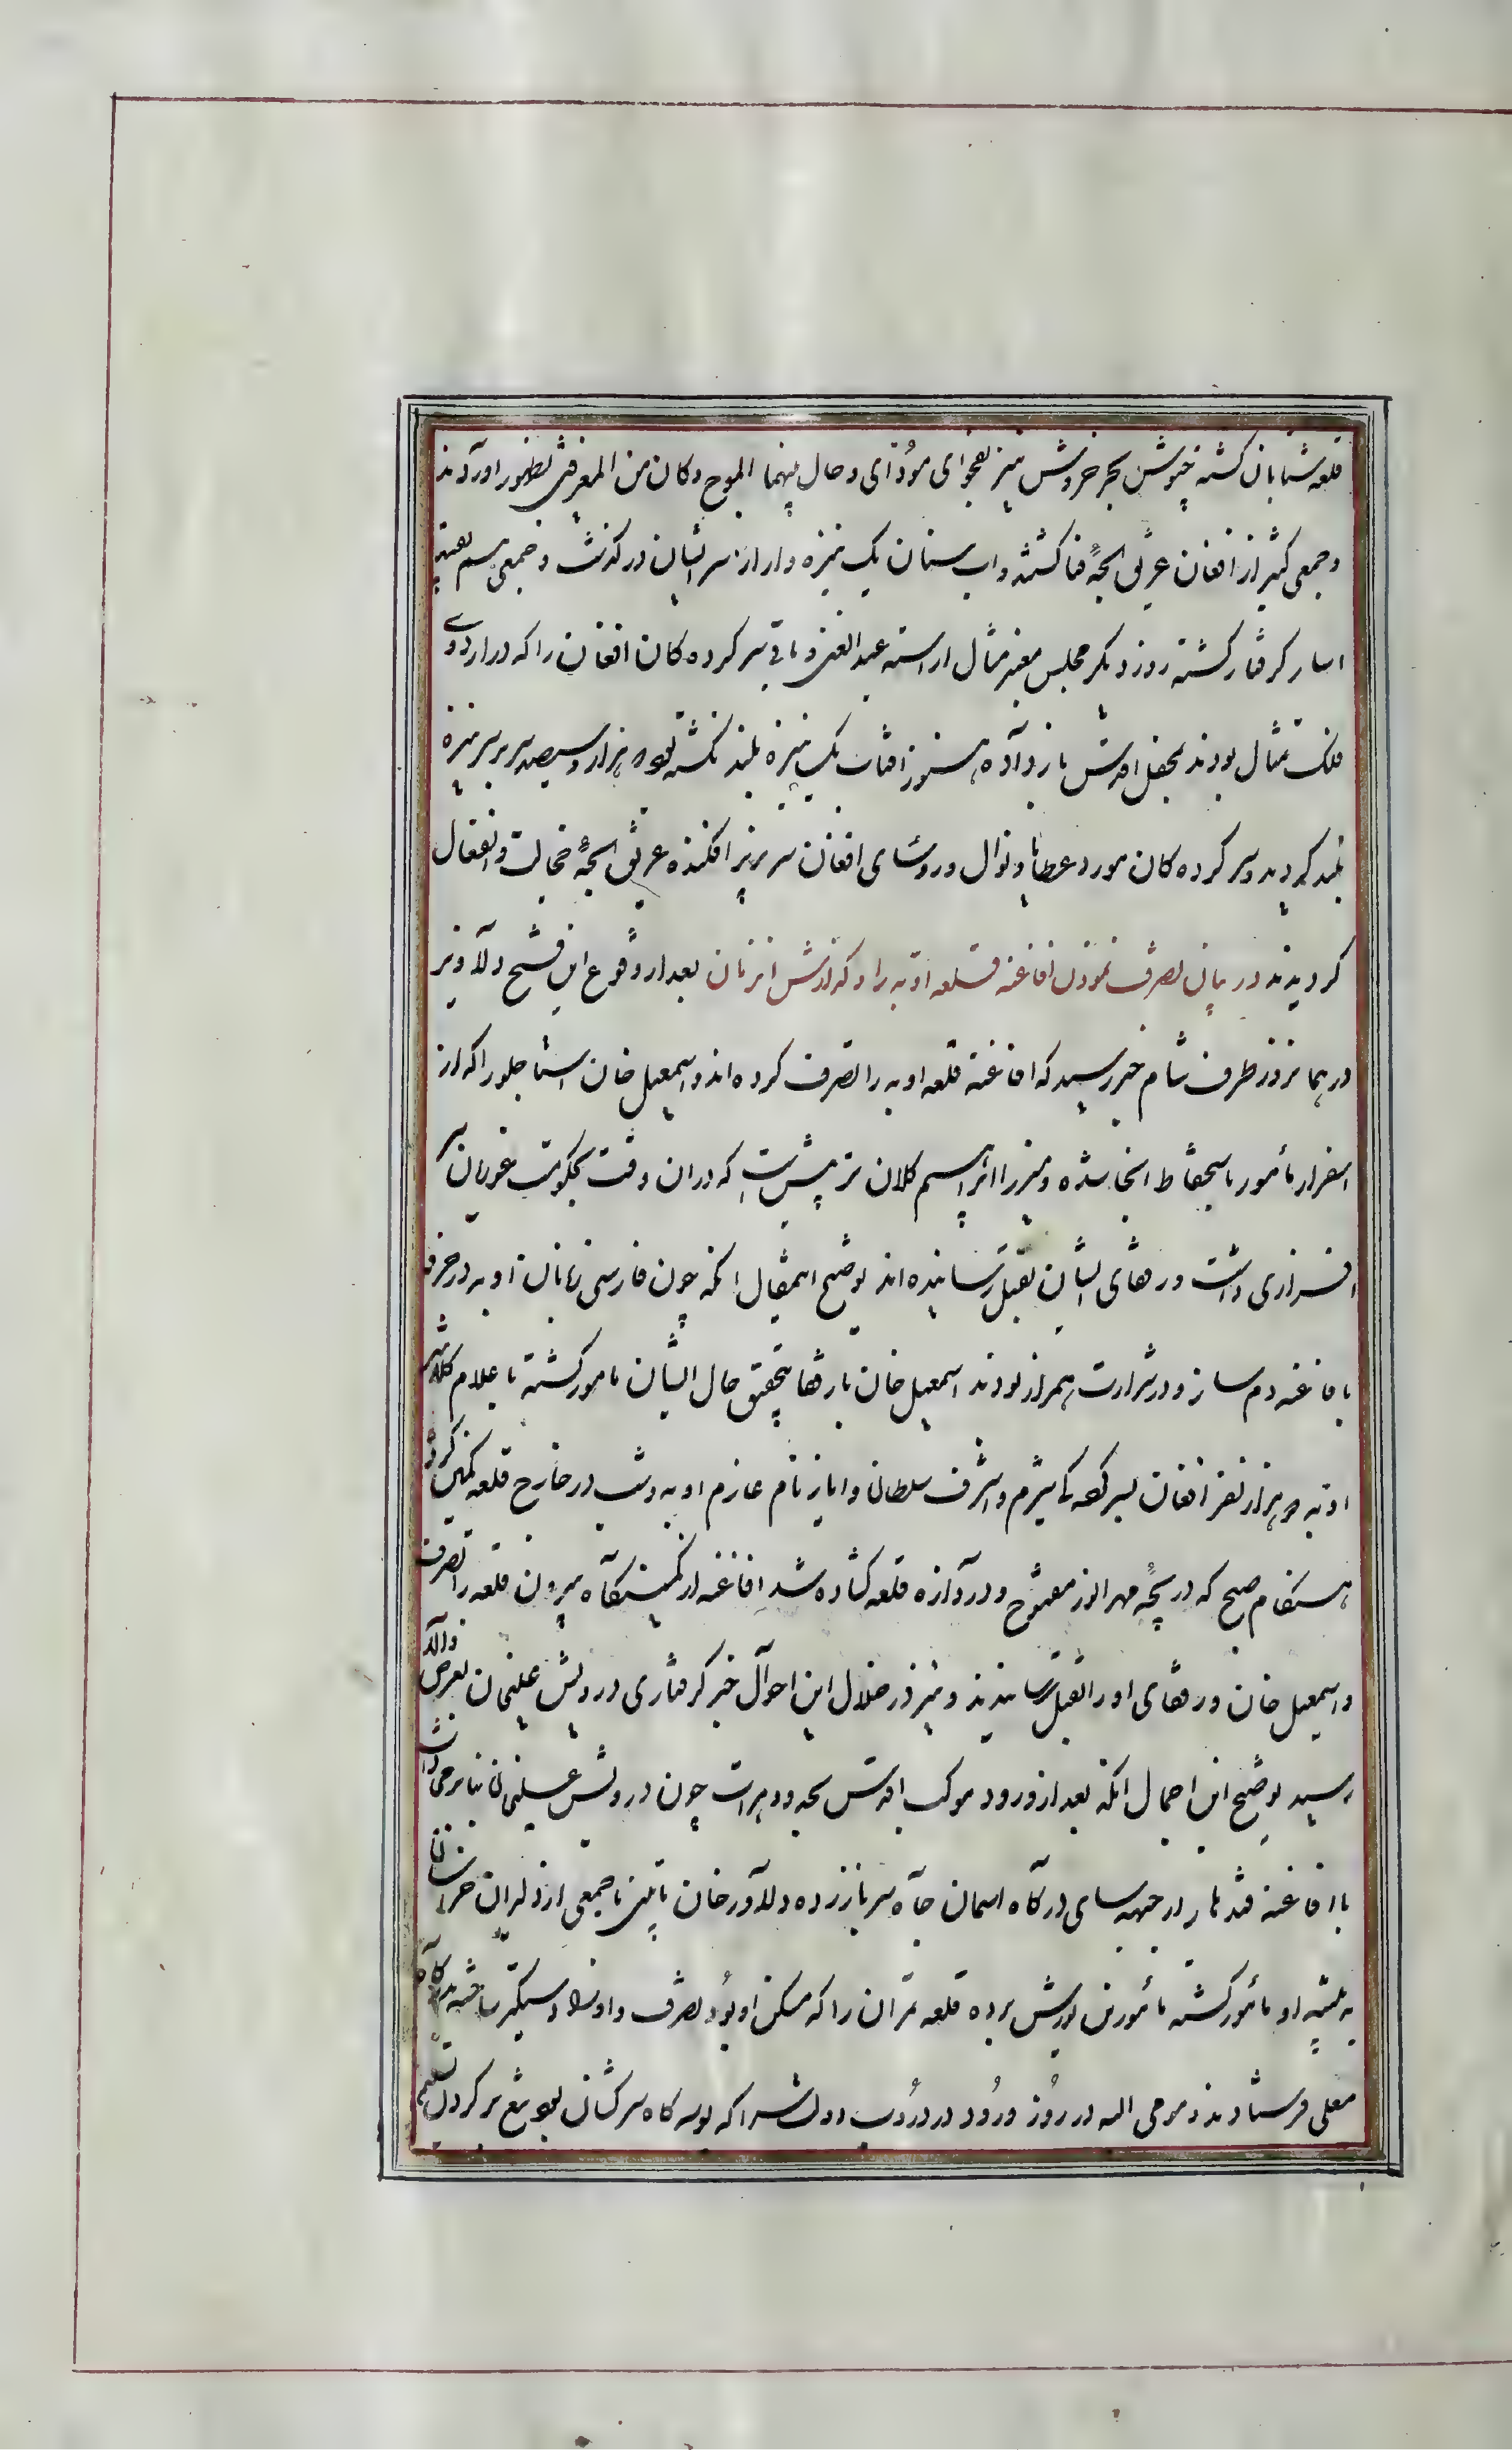 قلعه شتابان گشته جیوش بحر خروش نیز بفحوای مؤدای و حال بینهما الموج و کان من المغرقین بظهور آوردند
و جمعی کثیر از افغان غریق لجهٔ فنا گشته و آب سنان یک نیزه وار از سر ایشان در گذشت و جمعی هم بقید
اسار گرفتار گشته روز دیگر مجلس مثال آراسته عبدالغنی و باقی سرکرده کان افغان را که در اردوی
فلک تمثال بودند بمحفل اقدس بار داده هنوز آفتاب یک نیزه بلند نگشته بود هزار و سیصد سر بر سر نیزه
بلند گردید و سرکرده کان مورد عطایا و نوال و روسای افغان سر بزیر افکنده غریق لجهٔ خجالت و انفعال
گردیدند در بیان تصرف نمودن افاغنه قلعه اوبه را و گذارش آنزمان بعد از وقوع این فتح دلاویز
در همانروز از طرف شام خبر رسید که افاغنه قلعه اوبه را تصرف کرده اند و اسمعیل خان استاجلو را که از
اسفراز مأمور باستحفاظ آنجا شده و میرزا ابراهیم کلانتر پیش است که در آن وقت بحکومت غوریان سر
افرازی داشت و رفقای ایشان بقتل رسانیده اند توضیح اینمقال آنکه چون فارسی زبانان اوبه در خرفه
با افاغنه دمساز و در شرارت همراز بودند اسمعیل خان با رفقا بتحقیق حال ایشان مامور گشته با علام کلانتر
اوبه دو هزار نفر افغان بسرکردگی شیرم و اشرف سلطان و ایاز نام عازم اوبه و شب در خارج قلعه کمین کرد
هنگام صبح که دریچهٔ مهر انور مفتوح و دروازه قلعه گشاده شد افاغنه از کمینگاه بیرون قلعه را تصرف
و اسمعیل خان و رفقای او را بقتل رسانیدند و نیز در خلال این احوال خبر گرفتاری درویش علیخان بعرض والا
رسید توضیح این اجمال آنکه بعد از ورود موکب اقدس بحدود هرات چون درویش علیخان بنابر
با افاغنه قندهار از جبهه سای درگاه آسمان جاه سر باز زده دلاور خان تایمنی با جمعی از دلیران خراسان
به تنبیه او مأمور گشته مأمورین یورش برده قلعه تمران را که مسکن او بود تصرف و او را دستگیر ساخته بدرگاه
معلی فرستادند و مومی الیه در روز ورود در درب دولتسرا که بوسه گاه سرکشان بود تیغ بر گردن تسلیم